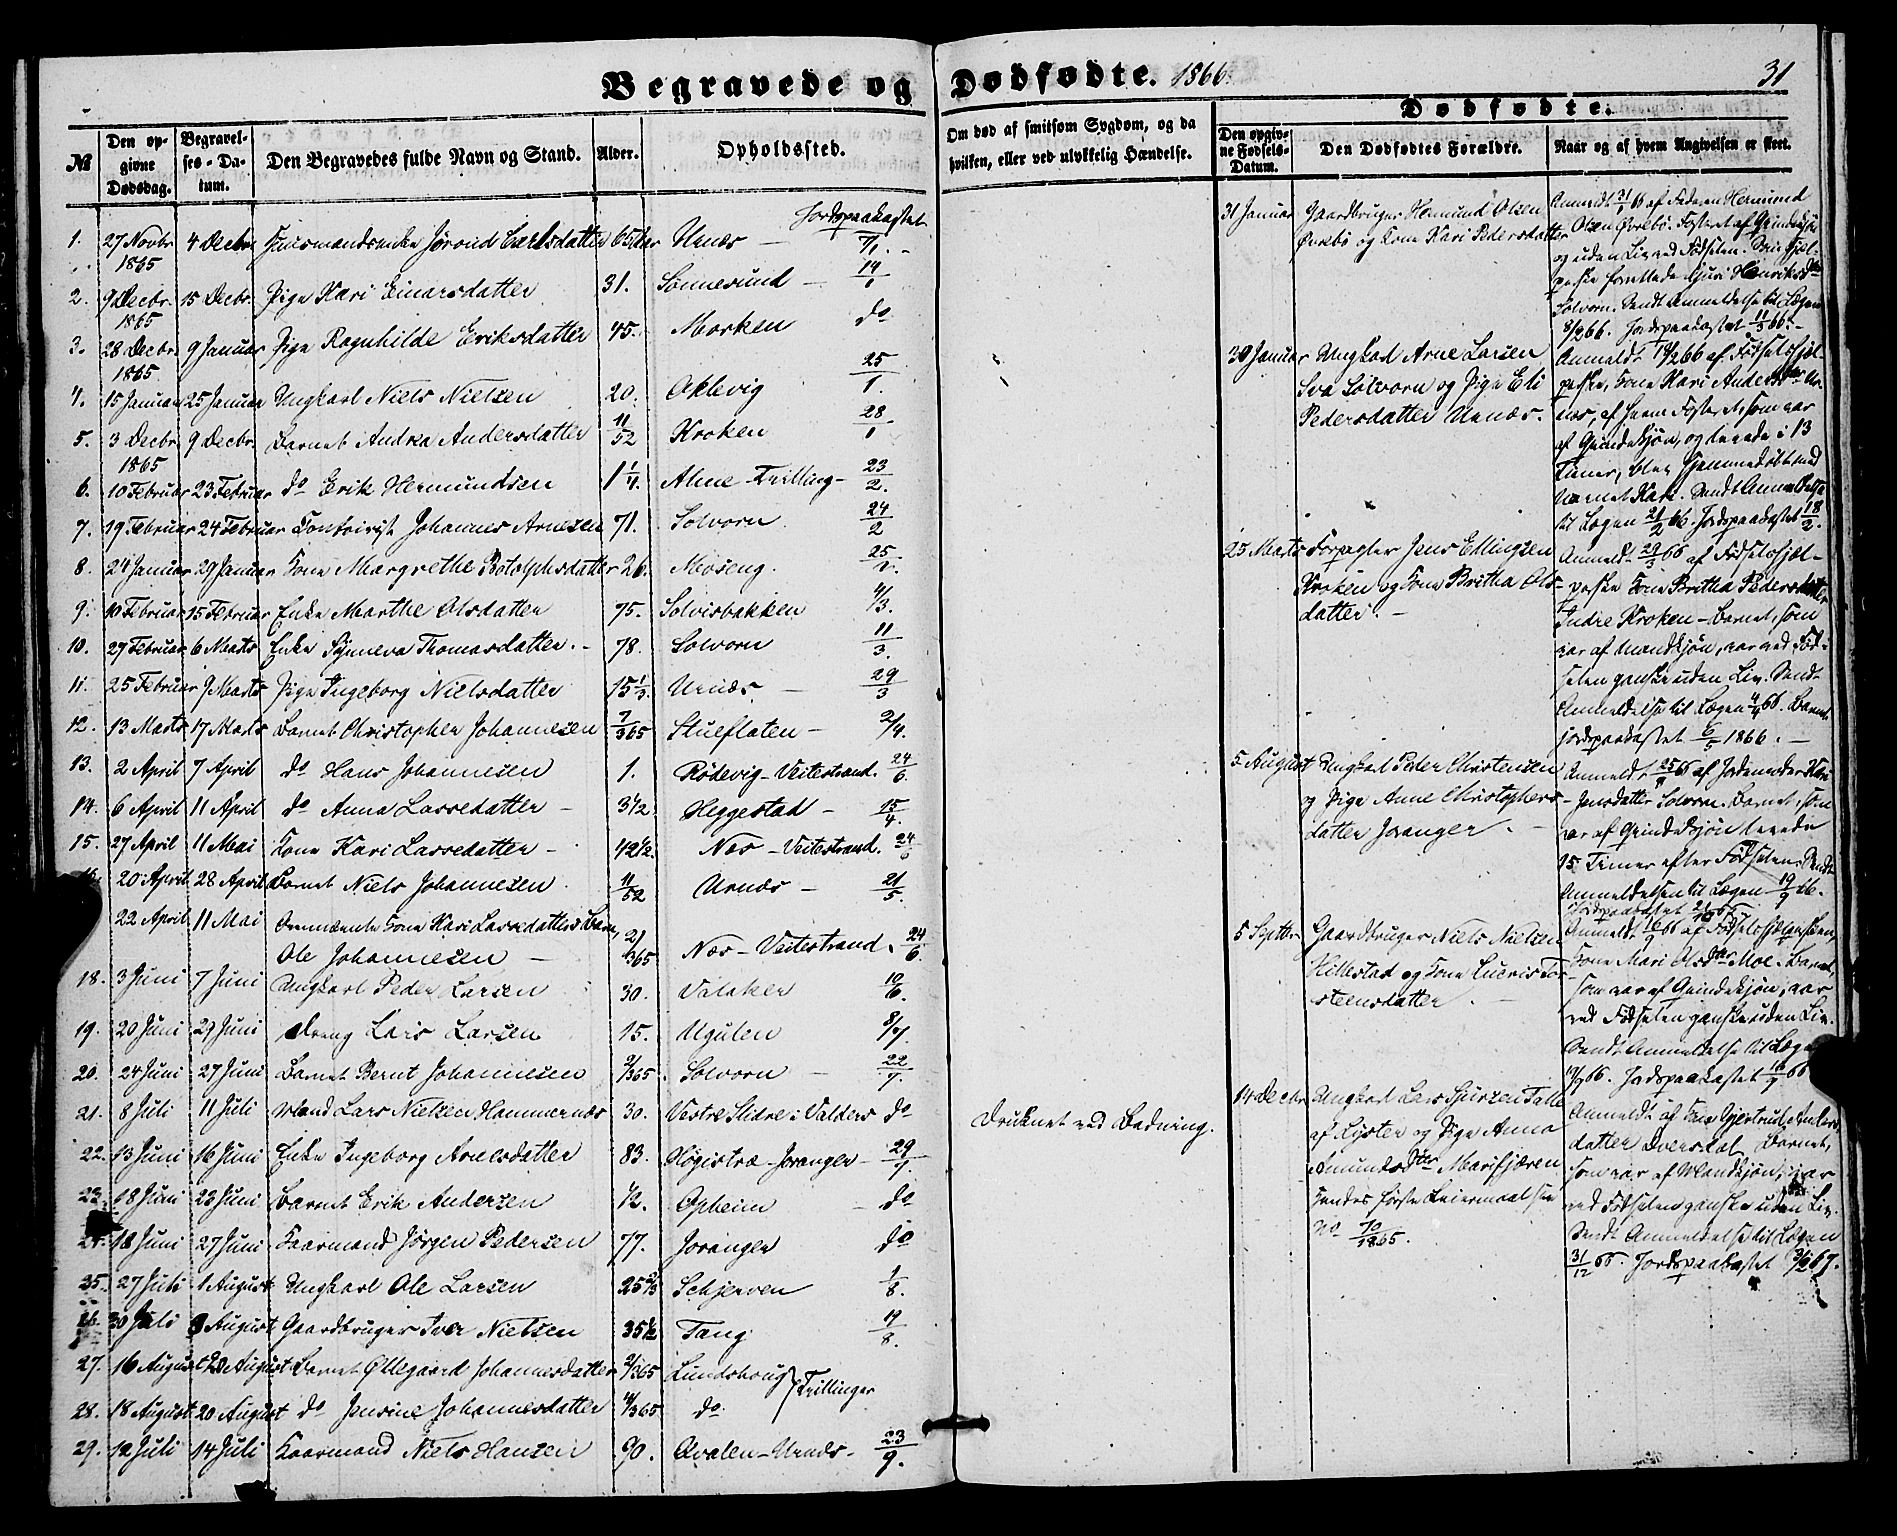 Begravede og Dødfødte. 1866. 31
№ Den opgivne Dødsdag. Begravelses-Datum. Den Begravedes fulde Navn og Stand. Alder. Opholdssted.
Om død af smitsom Sygdom, og da hvilken, eller ved ulykkelig Hændelse.
Dødfødte.
Den opgivne Fødsels-Datum. Den Dødfødtes Forældre. Naar og af hvem Angivelsen er skeet.
Jordpaakastet
1. 27 Novbr 1865 4 Decbr Huusmandsenke Jørond Carlsdatter Urnæs
2. 9 Decbr. 1865 15 Decbr. Pige Kari Einarsdatter 31. Sonnesund 14/1
3. 28 Decbr 1865 9 Januar Pige Ragnhilde Eriksdatter 45. Morken do
4. 15 Januar 25 Januar Ungkarl Niels Nielsen 20. Oklevig 25/1.
5. 3 Decbr 1865 9 Decbr. Barnet Andrea Andersdatter 11/52 Kroken 28/1
6. 10 Februar 23 Februar do Erik Hermundsen 1 1/4. Alme - Tvilling - 23/2.
7. 19 Februar 24 Februar Johannes Arnesen 71. Solvorn 24/2
8. 24 Januar 29 Januar Kone Margrethe Botolphsdatter 26. Moseng. 25/2.
9. 10 Februar 15 Februar Enke Marthe Olsdatter 75. Solvisbakken 4/3.
10. 27 Februar 6 Marts Enke Synneva Thomasdatter. - 78. Solvorn 11/3.
11. 25 Februar 9 Marts Pige Ingeborg Nielsdatter 15 1/3. Urnæs - 29/3
12. 13 Marts 17 Marts Barnet Christopher Johannesen 7/365 Stueflaten - 2/4.
13. 2 April 7 April do Hans Johannesen 1. Rødevig - Veitestrand. 24/6.
14. 6 April 11 April do Anna Lassedatter - 3 1/2. Heggestad - 15/4.
15. 27 April 11 Mai Kone Kari Lassedatter - 42 1/2. Næs - Veitestrand. 24/6
16. 20 April 28 April Barnet Niels Johannesen. 11/52 Urnæs - 21/5.
22 April 11 Mai Ovennævnte Kone Kari Lassedatters Barn,
Ole Johannesen - 21/365 Næs - Veitestrand. 24/6.
18. 3 Juni 7 Juni Ungkarl Peder Larsen 30. Valaker 10/6.
19. 20 Juni 27 Juni Dreng Lars Larsen 15. Ugulen 8/7
20. 24 Juni 27 Juni Barnet Bernt Johannesen 2/365. Solvorn - 22/7.
21. 8 Juli 11 Juli Mand Lars Nielsen Hammernæs 30. Vestre Slidre i Valders do Druknet ved Badning.
22. 13 Juni 16 Juni Enke Ingeborg Arnesdatter 83. Høgistræ - Joranger - 29/7.
23. 18 Juni 23 Juni Barnet Erik Andersen 1/2. Opheim - do
24. 18 Juni 27 Juni Kaarmand Jørgen Pedersen 77. Joranger do
25. 27 Juli 1 August Ungkarl Ole Larsen 25 2/3 Schjerven 1/8.
26. 30 Juli August Gaardbruger Iver Nielsen 35 1/2 Tang 19/8.
27. 16 August August Barnet Øllegaard Johannesdatter 2/365 Lundshoug
Tvillinger
28. 18 August 20 August do Jensine Johannesdatter 4/365 do
29. 12 Juli 14 Juli Kaarmand Niels Hansen 90. Qvalen - Urnæs - 23/9.
31 Januar Gaardbruger Hermund Olsen
Øvrebø og Kone Kari Pedersdatter
Anmeldt 31/1 66 af Faderen Hermund
Olsen Øvrebø. Fosteret af Qvindekjøn
og uden Liv ved Fødselen.
Henriksdtr
Solvorn. Sendt Anmeldelse til Lægen
8/2 66. Jordpaakastet 11/3 66. -
30 Januar Ungkarl Arne Larsen
Eva Solvorn og Pige Eli
Pedersdatter Urnæs.
Anmeldt 14/2 66 af Fødselshjæl-
perske, Kone Kari Andersdtr Ur-
næs, af hvem Fosteret, som var
af Qvindekjøn, og levede i 13
Timer, blev hjemmedøbt med
Navnet Kari. Sendt Anmeldelse
til Lægen 21/2 66. Jordpaakastet 18/2.
25 Marts Forpagter Jens Ellingsen
Kroken og Kone Britha Ols-
datter. -
Anmeldt 29/3 66 af Fødselshjæl-
perske Kone Brittha Pedersdatter
Indre Kroken - Barnet, som
var af Mandkjøn, var ved Fød-
selen ganske uden Liv. Sendt
Anmeldelse til Lægen 4/4 66. Barnet
jordpaakastet 6/5 1866. -
5 August Ungkarl Peder Christensen
og Pige Anne Christophers-
datter Joranger. -
Anmeldt 25/8 66 af Jordemoder Kari
Jensdatter Solvorn. Barnet, som
var af Qvindekjøn levede
15 Timer efter Fødselen. Sendt
Anmeldelsen til Lægen 19/9 66.
Jordpaakastet
5 Septbr. Gaardbruger Niels Nielsen
Hillestad og Kone Lucris Tor-
steensdatter. -
Anmeldt af Fødselshjælpersken,
Kone Mari Olsdtr Moe. Barnet,
som var af Qvindekjøn, var
ved Fødselen ganske uden Liv.
Sendt Anmeldelse til Lægen
19/9 66. Jordpaakastet 16/9 66
14 Decbr. Ungkarl Lars Sjursen Talle
af Lyster og Pige Anna
Amundsdtr Marifjæren
hendes første Leiermaal see
No 70/1865.
Anmeldt af Kone Gjertrud Anders-
datter Dversdal. Barnet,
som var af Mandkjøn, var
ved Fødselen ganske uden Liv.
Sendt Anmeldelse til Lægen
31/12 66. Jordpaakastet 3/2 67.